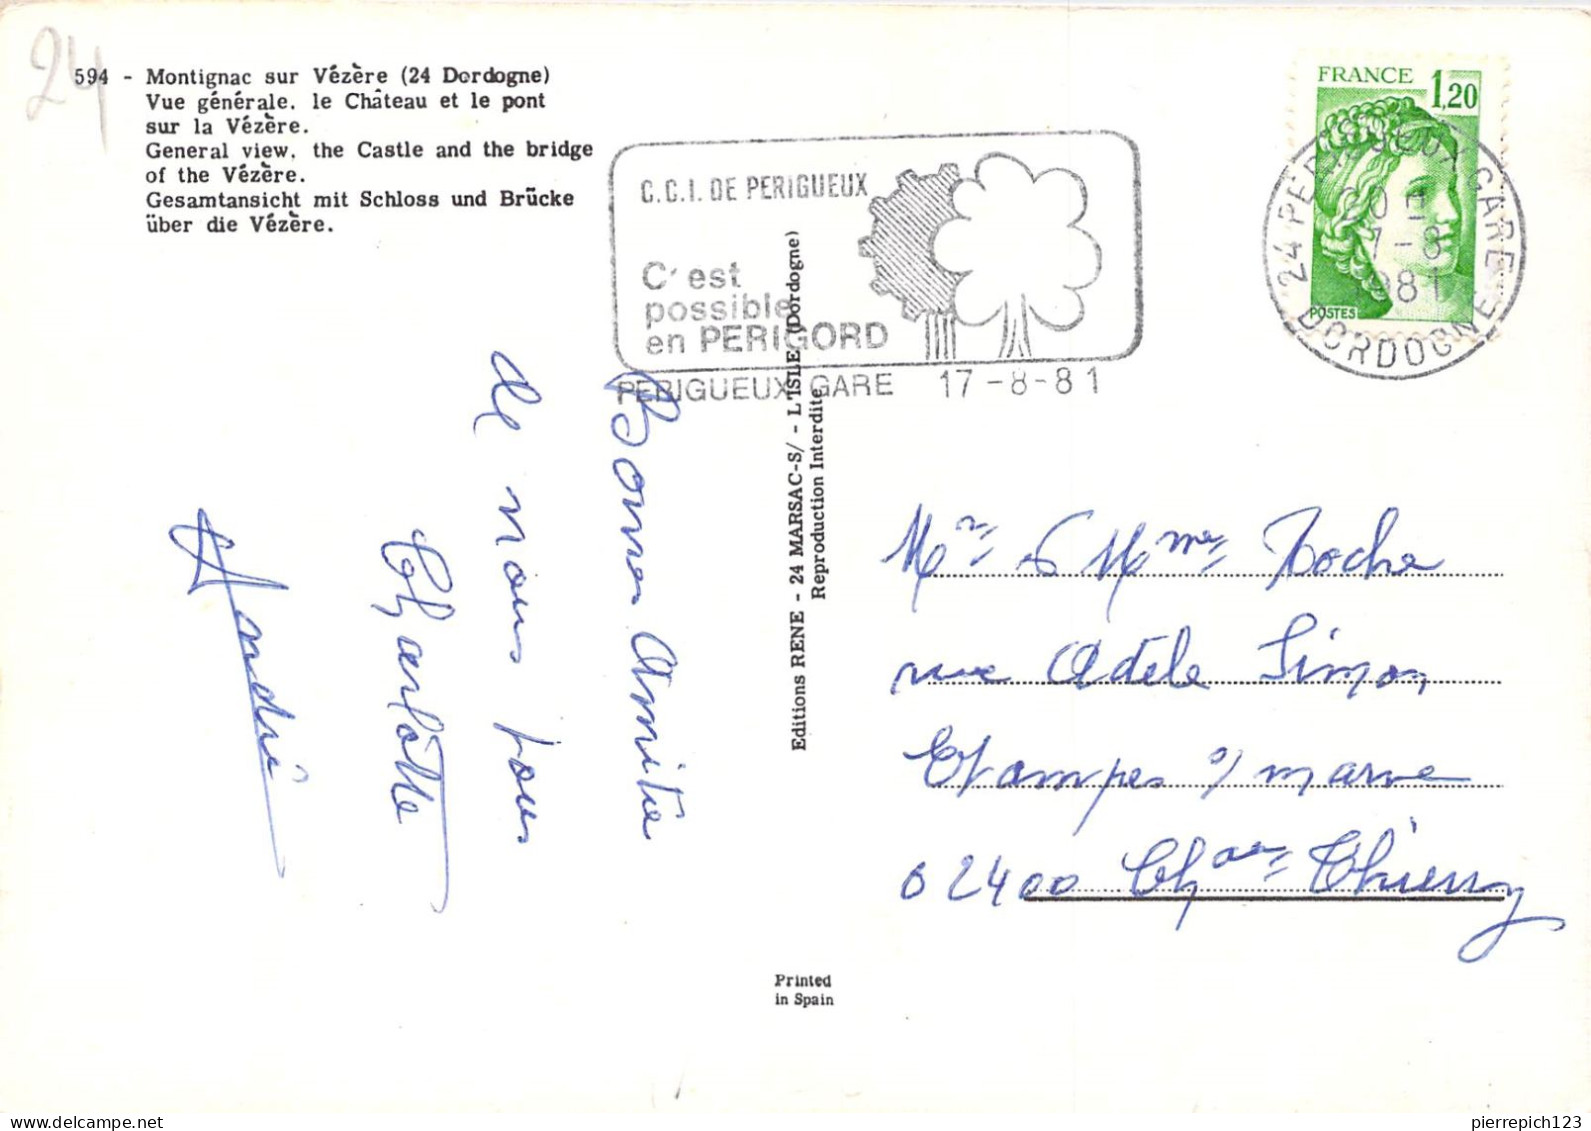 24
594 - Montignac sur Vézère (24 Dordogne)
Vue générale. le Château et le pont
sur la Vézère.
General view. the Castle and the bridge
of the Vézère.
Gesamtansicht mit Schloss und Brücke
über die Vézère.
C.C.I. DE PERIGUEUX
C'est
possible
en PERIGORD
PERIGUEUX GARE 17-8-81
FRANCE 1,20
POSTES
24 PERIGUEUX GARE
17-8
1981
DORDOGNE
Bonnes Amitiés
de nous tous
Charlotte
André
Editions RENE - 24 MARSAC-S/ - L'ISLE (Dordogne)
Reproduction Interdite
Mr & Mme Roche
rue Adèle Simon
Etampes s/ marne
02400 Chau Thierry
Printed
in Spain
pierrepich123